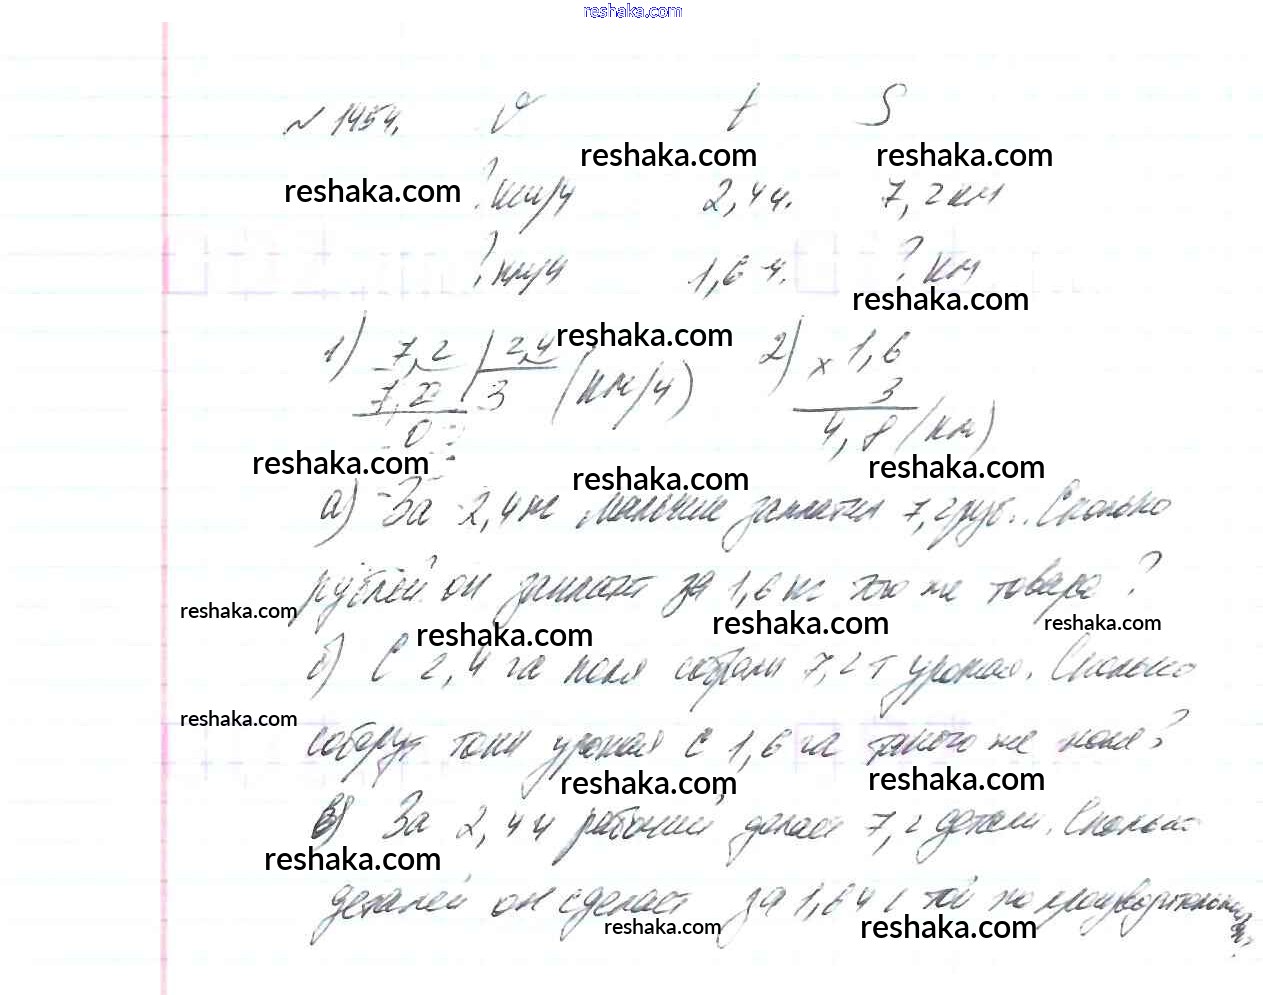 reshaka.com
№ 1454. v t S
reshaka.com reshaka.com
reshaka.com
? км/ч 2,4 ч. 7,2 км
? км/ч 1,6 ч. ? км
reshaka.com
reshaka.com
1) 7,2 | 2,4 2) × 1,6
7,2 3 (км/ч) 3
0 4,8 (км)
reshaka.com reshaka.com
reshaka.com
а) За 2,4 кг мальчик заплатил 7,2 руб. Сколько
рублей он заплатит за 1,6 кг того же товара?
reshaka.com reshaka.com reshaka.com
reshaka.com
б) С 2,4 га поля собрали 7,2 т урожая. Сколько
reshaka.com
соберут тонн урожая с 1,6 га такого же поля?
reshaka.com reshaka.com
в) За 2,4 ч рабочий делает 7,2 детали. Сколько
reshaka.com
деталей он сделает за 1,6 ч с той же
reshaka.com reshaka.com